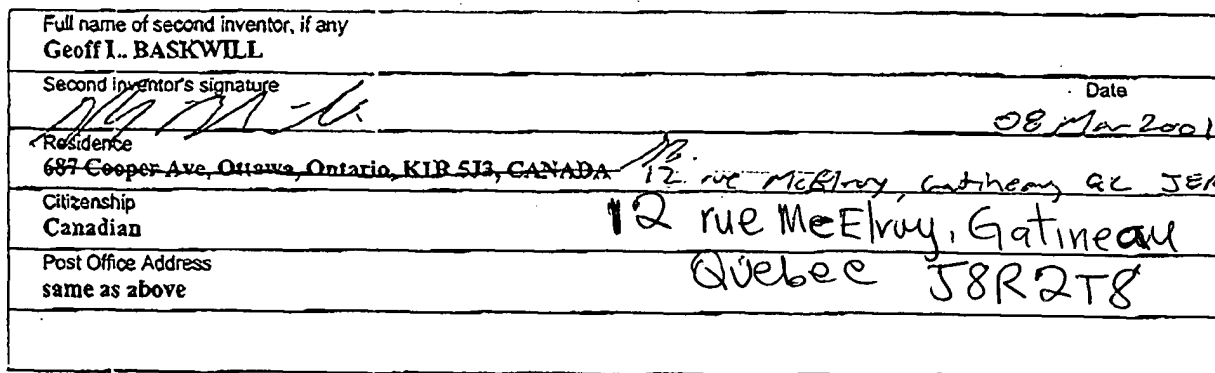 Full name of second inventor, if any
Geoff L. BASKWILL
Second inventor's signature
Date
08 Mar 2001
Residence
687 Cooper Ave, Ottawa, Ontario, K1R 5J3, CANADA 12 rue McElroy, Gatineau QC
Citizenship
Canadian
12 rue McElroy, Gatineau
Quebec J8R2T8
Post Office Address
same as above